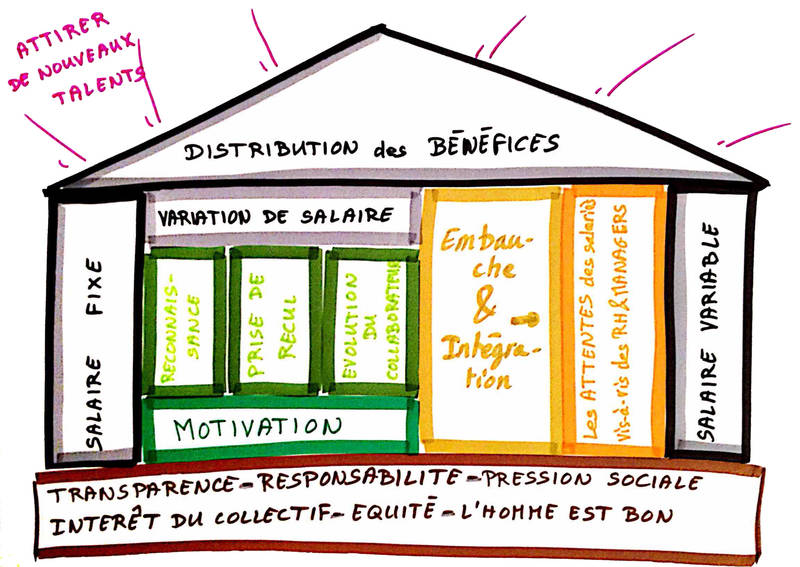 ATTIRER
DE NOUVEAUX
TALENTS
DISTRIBUTION des BÉNÉFICES
SALAIRE FIXE
VARIATION DE SALAIRE
RECONNAIS-
SANCE
PRISE DE
RECUL
EVOLUTION
DU
COLLABORATEUR
MOTIVATION
Embau-
che
&
Intégra-
tion
Les ATTENTES des salariés
Vis-à-vis des RH & MANAGERS
SALAIRE VARIABLE
TRANSPARENCE - RESPONSABILITE - PRESSION SOCIALE
INTERÊT DU COLLECTIF - EQUITÉ - L'HOMME EST BON